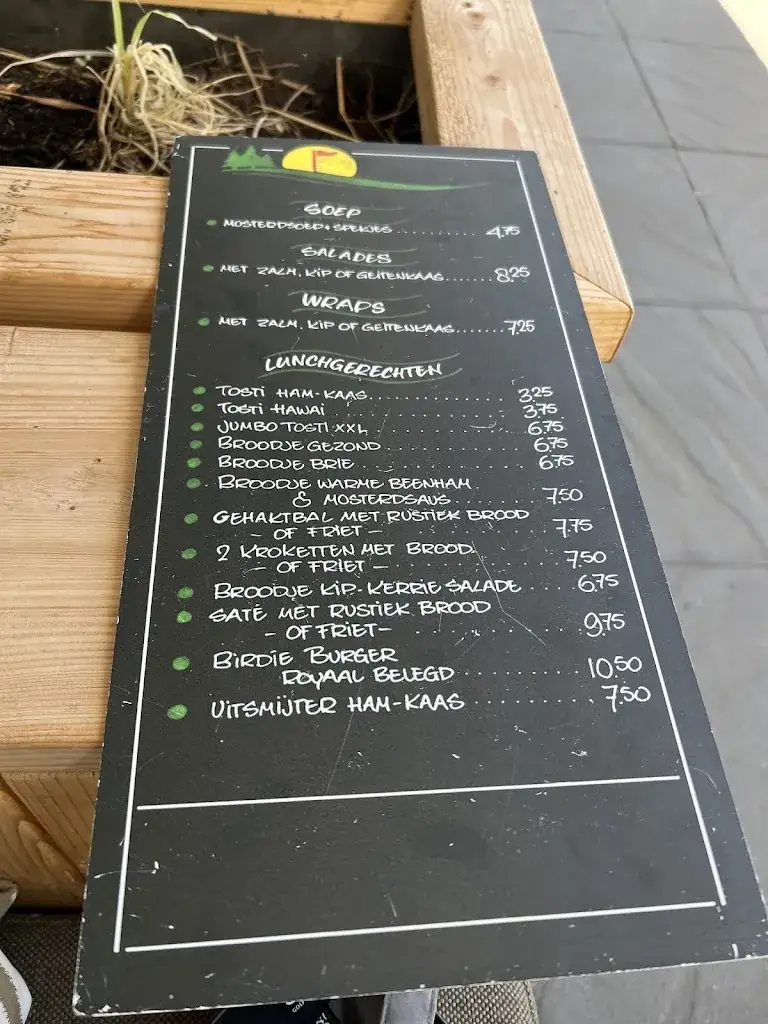 SOEP
MOSTERDSOEP + SPEKJES.......... 4,75
SALADES
MET ZALM, KIP OF GEITENKAAS....... 8,25
WRAPS
MET ZALM, KIP OF GEITENKAAS....... 7,25
LUNCHGERECHTEN
TOSTI HAM-KAAS................ 3,25
TOSTI HAWAI ................ 3,75
JUMBO TOSTI XXL ............ 6,75
BROODJE GEZOND ............ 6,75
BROODJE BRIE ............... 6,75
BROODJE WARME BEENHAM
& MOSTERDSAUS....... 7,50
GEHAKTBAL MET RUSTIEK BROOD
- OF FRIET - ............ 7,75
2 KROKETTEN MET BROOD
- OF FRIET - ............ 7,50
BROODJE KIP-KERRIE SALADE .... 6,75
SATÉ MET RUSTIEK BROOD
- OF FRIET- ............ 9,75
BIRDIE BURGER
ROYAAL BELEGD ......... 10,50
UITSMIJTER HAM-KAAS ......... 7,50